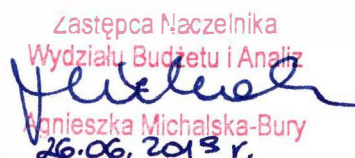 Zastępca Naczelnika
Wydziału Budżetu i Analiz
Agnieszka Michalska-Bury
26.06.2019 r.